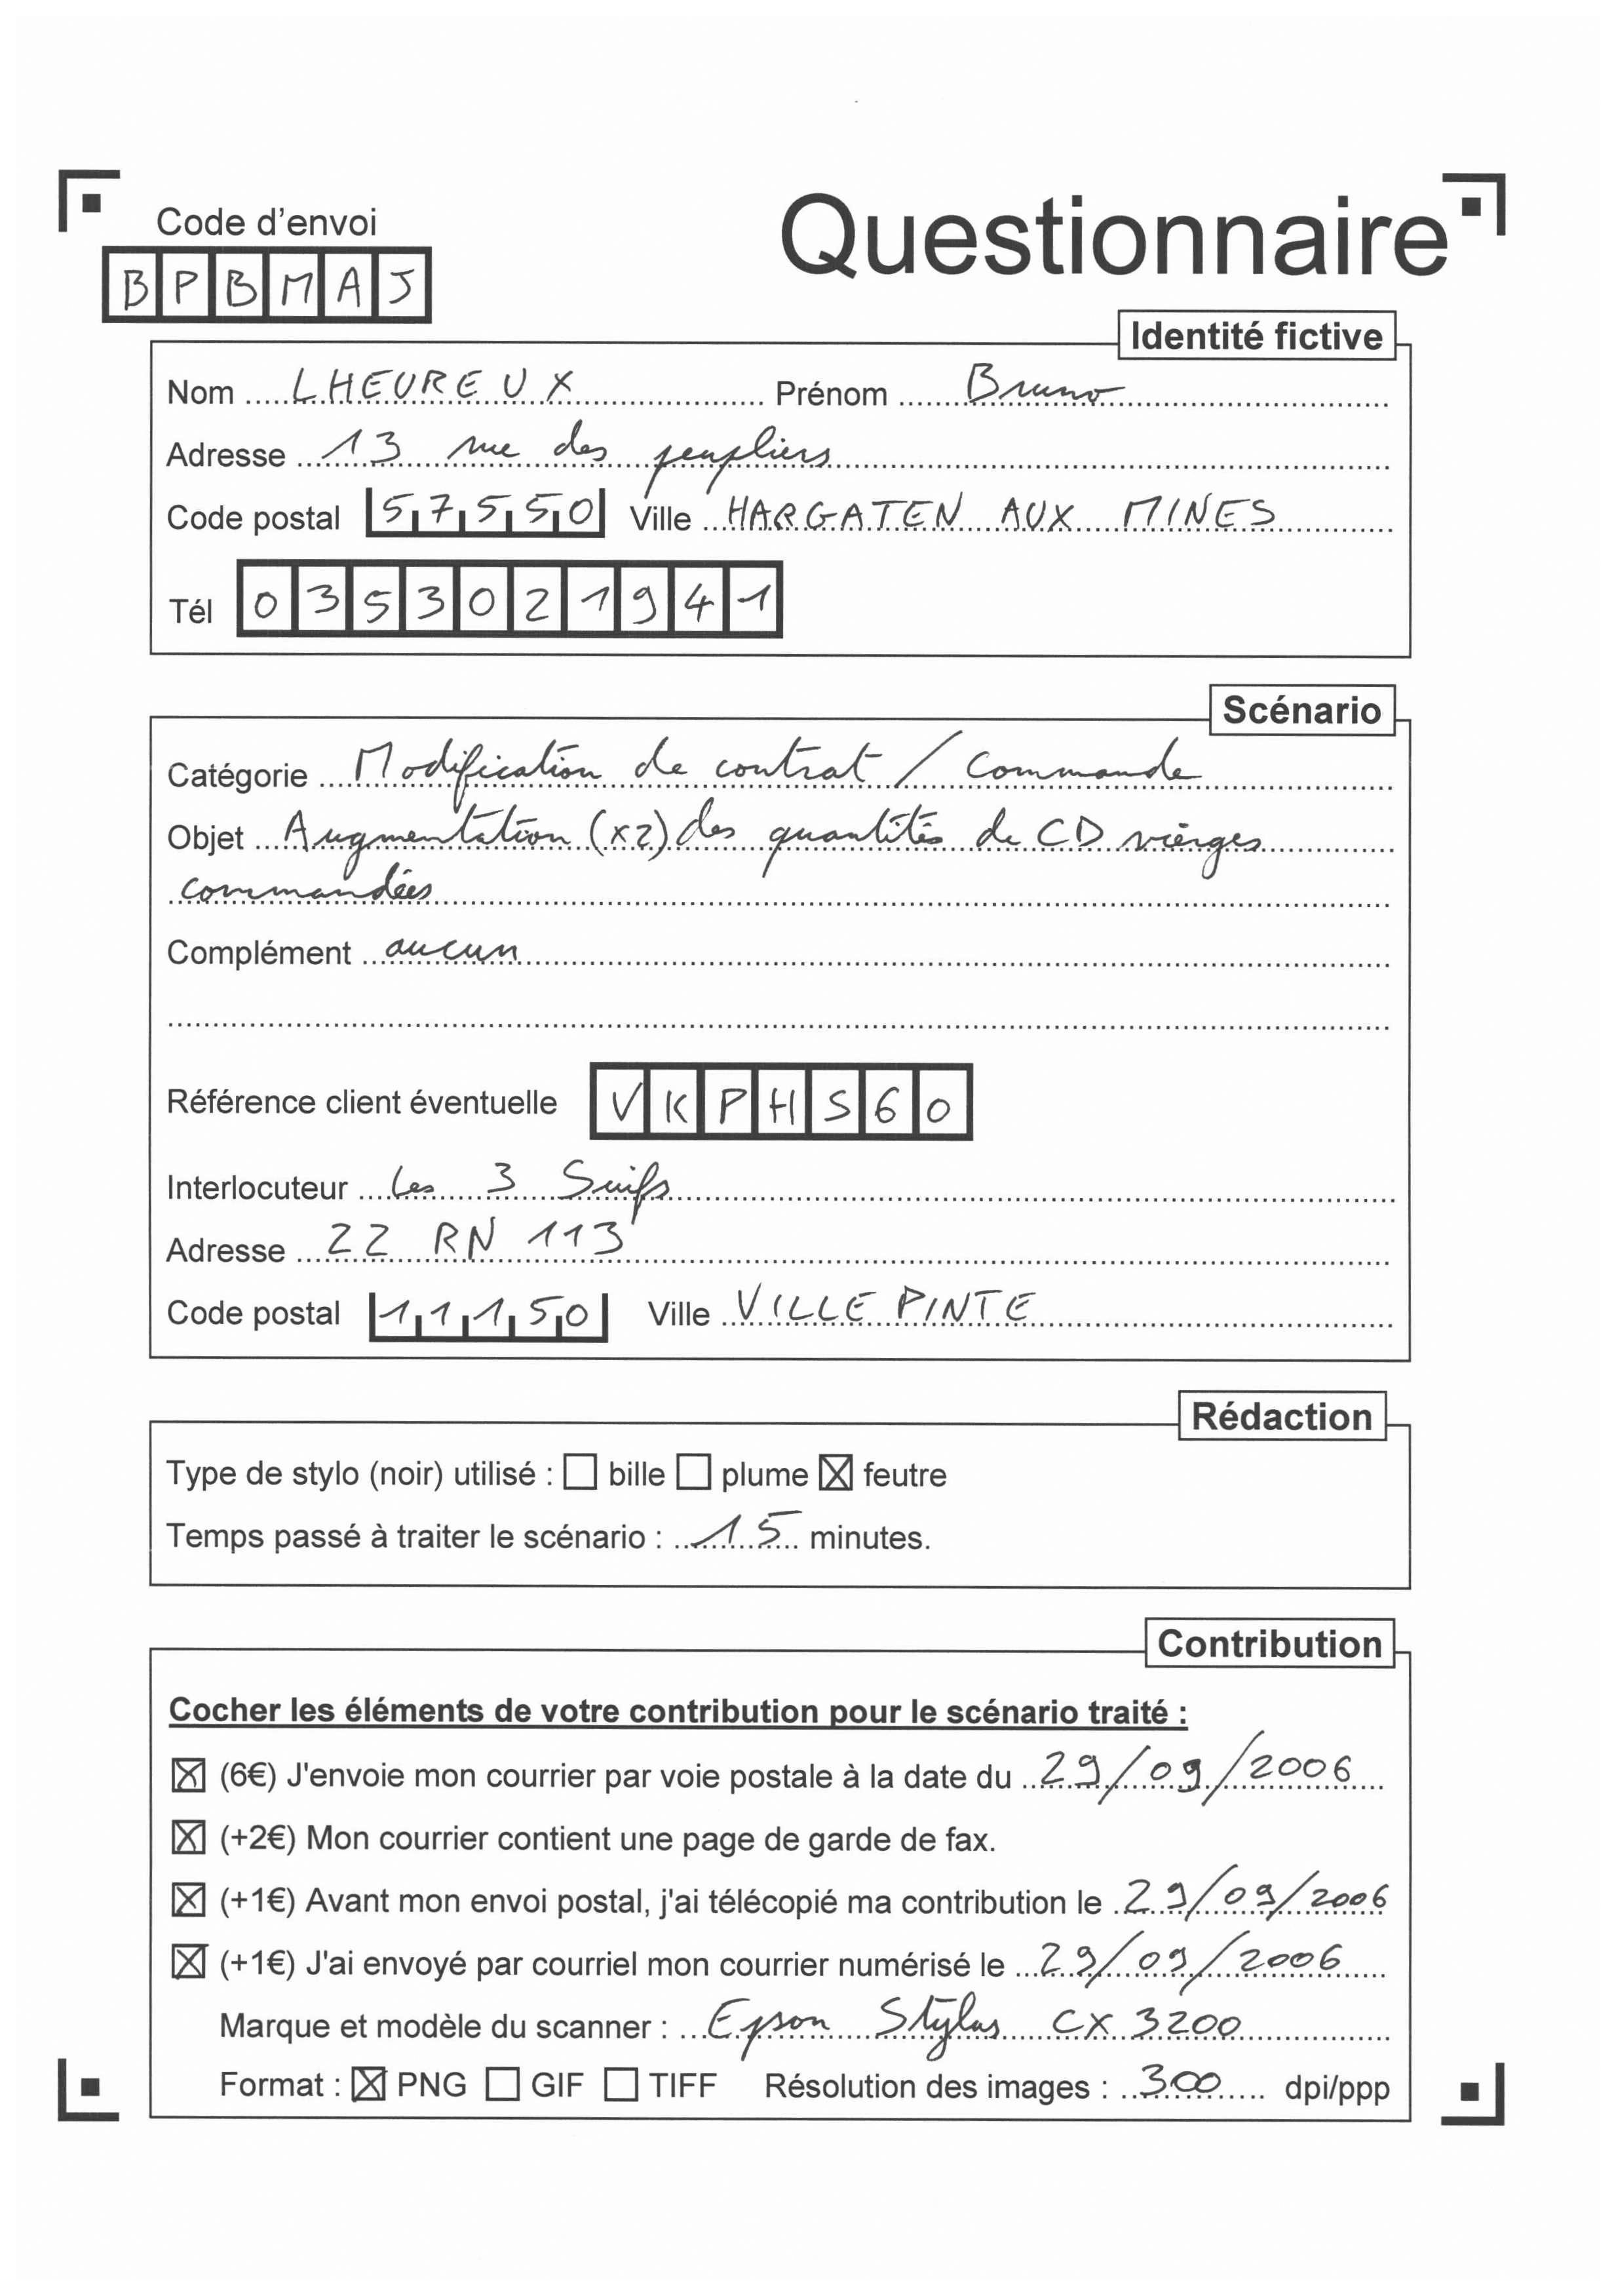 Code d'envoi
Questionnaire
BPBMAJ
Identité fictive
Nom LHEUREUX Prénom Bruno
Adresse 13 rue des peupliers
Code postal 57550 Ville HARGATEN AUX MINES
Tél 0353021941
Scénario
Catégorie Modification de contrat / Commande
Objet Augmentation (x2) des quantités de CD vierges
commandées
Complément aucun
Référence client éventuelle VKPHS60
Interlocuteur Les 3 Suifs
Adresse 22 RN 113
Code postal 11150 Ville VILLEPINTE
Rédaction
Type de stylo (noir) utilisé : ☐ bille ☐ plume ☒ feutre
Temps passé à traiter le scénario : 15 minutes.
Contribution
Cocher les éléments de votre contribution pour le scénario traité :
☒ (6€) J'envoie mon courrier par voie postale à la date du 29/09/2006
☒ (+2€) Mon courrier contient une page de garde de fax.
☒ (+1€) Avant mon envoi postal, j'ai télécopié ma contribution le 29/09/2006
☒ (+1€) J'ai envoyé par courriel mon courrier numérisé le 29/09/2006
Marque et modèle du scanner : Epson Stylus CX 3200
Format : ☒ PNG ☐ GIF ☐ TIFF Résolution des images : 300 dpi/ppp